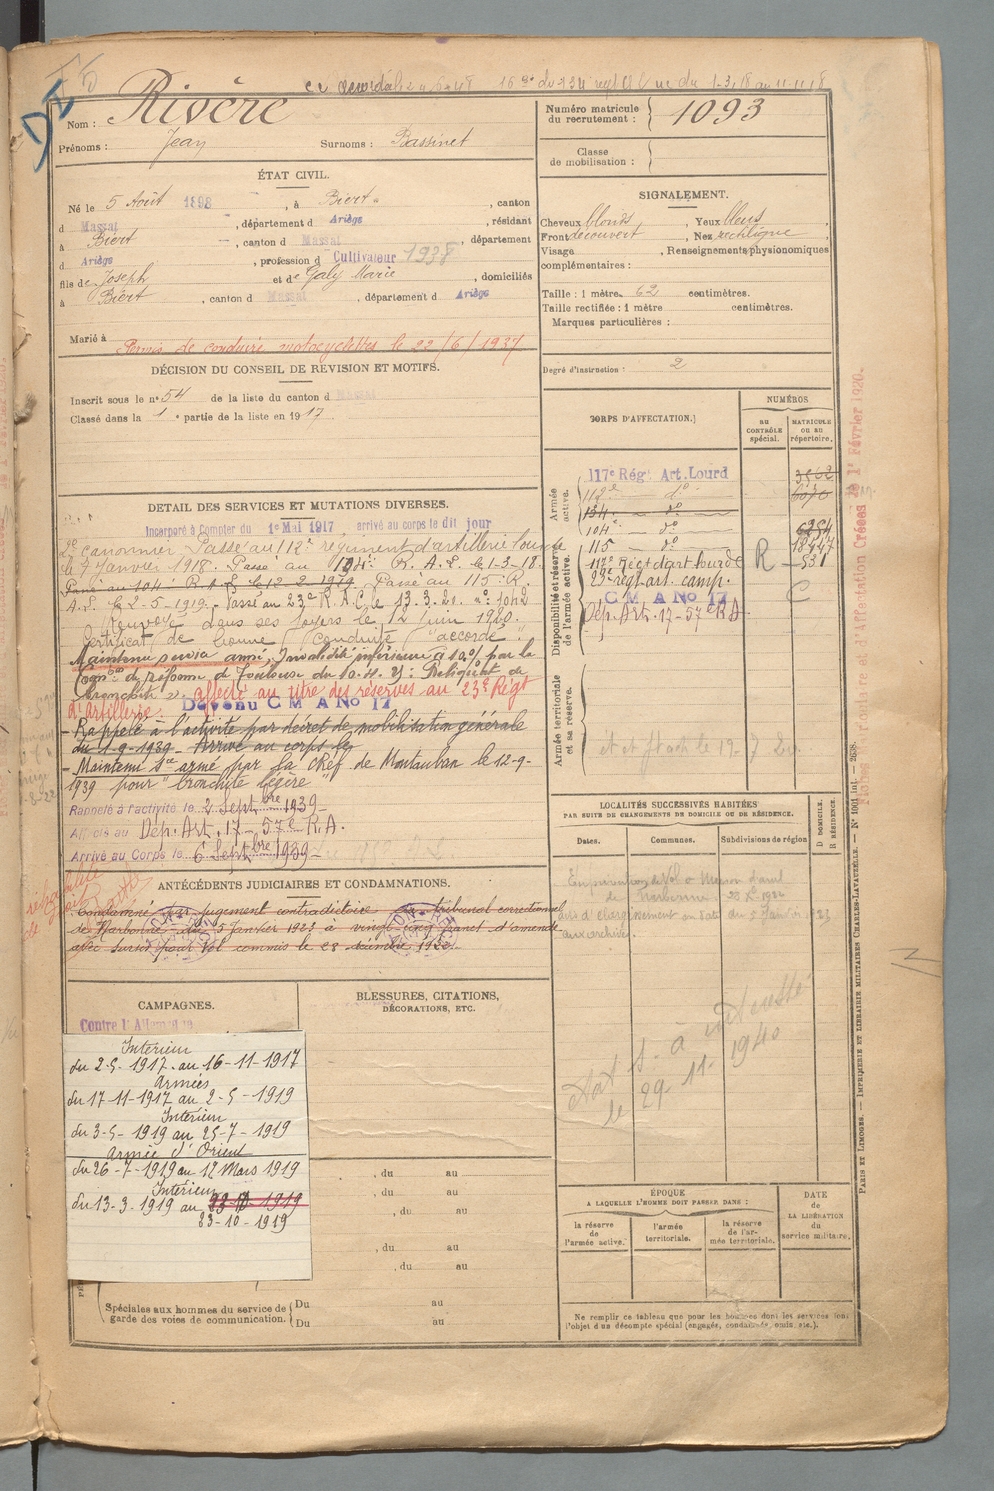 Nom : Rivère
Prénoms : Jean Surnoms : Bassinet
Numéro matricule du recrutement : 1093
Classe de mobilisation :
ÉTAT CIVIL.
Né le 5 Août 1898, à Biert, canton
d Massat, département d Ariège, résidant
à Biert, canton d Massat, département
d Ariège, profession d Cultivateur 1938
fils de Joseph et de Galy Marie, domiciliés
à Biert, canton d Massat, département d Ariège
Marié à
Permis de conduire motocyclettes le 22/6/1937
SIGNALEMENT.
Cheveux blonds, Yeux bleus
Front découvert, Nez rectiligne
Visage, Renseignements physionomiques
complémentaires :
Taille : 1 mètre 62 centimètres.
Taille rectifiée : 1 mètre centimètres.
Marques particulières :
Degré d'instruction : 2
DÉCISION DU CONSEIL DE RÉVISION ET MOTIFS.
Inscrit sous le n° 54 de la liste du canton d Massat
Classé dans la 1e partie de la liste en 1917
CORPS D'AFFECTATION.
NUMÉROS
AU CONTRÔLE spécial.
MATRICULE ou au répertoire.
Armée active.
117e Rég' Art. Lourd
112e — do —
134 — do —
104e — do —
115 — do — 18447
Disponibilité et réserve de l'armée active.
112e Régt d'art lourde R 531
23e régt art. camp. C
C M A No 17
Dép. Art. 17 - 57e R A
Armée territoriale et sa réserve.
DÉTAIL DES SERVICES ET MUTATIONS DIVERSES.
Incorporé à Compter du 1e Mai 1917 arrivé au corps le dit jour
2e canonnier. Passé au 112e régiment d'artillerie lourde
le 7 janvier 1918. Passé au 134e R. A. L. le 1-3-18.
Passé au 104e R. A. L. le 12-2-1919. Passé au 115 R.
A. L. le 2-5-1919. Passé au 23e R.A.C. le 13.3.20. no 1042
Renvoyé dans ses foyers le 12 juin 1920.
Certificat de bonne conduite "accordé".
Maintenu service armé, Invalidité inférieure à 10% par la
Comon de réforme de Toulouse du Reliquat de
bronchite. affecté au titre des réserves au 23e Régt
d'artillerie. Devenu C M A No 17
- Rappelé à l'activité par décret de mobilisation générale
du 1-9-1939 - Arrivé au corps le
- Maintenu sce armé par la de Montauban le 12-9-
1939 pour "bronchite légère"
Rappelé à l'activité le 2 Septbre 1939 -
Affecté au Dép. Art. 17 - 57e R.A.
Arrivé au Corps le 6 Septbre 1939 -
LOCALITÉS SUCCESSIVES HABITÉES
PAR SUITE DE CHANGEMENTS DE DOMICILE OU DE RÉSIDENCE.
Dates. Communes. Subdivisions de région
D DOMICILE. R RÉSIDENCE.
ANTÉCÉDENTS JUDICIAIRES ET CONDAMNATIONS.
Condamné par jugement contradictoire tribunal correctionnel
de Narbonne, du 5 Janvier 1923 à vingt-cinq francs d'amende
avec sursis pour Vol commis le 28 décembre 1922.
CAMPAGNES.
Contre l'Allemagne
Intérieur
du 2-5-1917. au 16-11-1917
Armées
du 17-11-1917 au 2-5-1919
Intérieur
du 3-5-1919 au 25-7-1919
Armée d'Orient
du 26-7-1919 au 12 Mars 1919
Intérieur
du 13-3-1919 au
23-10-1919
BLESSURES, CITATIONS,
DÉCORATIONS, ETC.
, du au
, du au
, du au
, du au
, du au
Spéciales aux hommes du service de garde des voies de communication.
Du au
Du au
le 29-11-1940
ÉPOQUE
A LAQUELLE L'HOMME DOIT PASSER DANS :
la réserve de l'armée active.
l'armée territoriale.
la réserve de l'armée territoriale.
DATE de LA LIBÉRATION du service militaire.
Ne remplir ce tableau que pour les hommes dont les services font
l'objet d'un décompte spécial (engagés, condamnés, omis, etc.).
PARIS ET LIMOGES. — IMPRIMERIE ET LIBRAIRIE MILITAIRES CHARLES-LAVAUZELLE. — N° 1061 int. — 2638.